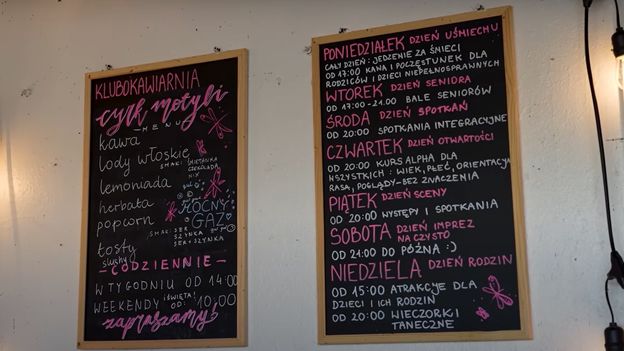 KLUBOKAWIARNIA
cyrk motyli
MENU
kawa
lody włoskie
SMAKI: ŚMIETANKA
CZEKOLADA
MIX
lemoniada
herbata
popcorn
MOCNY
GAZ
tosty
SMAKI: SER
SZYNKA
SER + SZYNKA
słuchy
- CODZIENNIE -
W TYGODNIU OD 14:00
WEEKENDY I ŚWIĘTA! OD: 10,00
zapraszamy!
PONIEDZIAŁEK DZIEŃ UŚMIECHU
CAŁY DZIEŃ: JEDZENIE ZA ŚMIECI
OD 17:00 KAWA I POCZĘSTUNEK DLA
RODZICÓW I DZIECI NIEPEŁNOSPRAWNYCH
WTOREK DZIEŃ SENIORA
OD 17:00-21.00 BALE SENIORÓW
ŚRODA DZIEŃ SPOTKAŃ
OD 20:00 SPOTKANIA INTEGRACYJNE
CZWARTEK DZIEŃ OTWARTOŚCI
OD 20:00 KURS ALPHA DLA
WSZYSTKICH: WIEK, PŁEĆ, ORIENTACJA
RASA, POGLĄDY-BEZ ZNACZENIA
PIĄTEK DZIEŃ SCENY
OD 20:00 WYSTĘPY I SPOTKANIA
SOBOTA DZIEŃ IMPREZ
NA CZYSTO
OD 21:00 DO PÓŹNA :)
NIEDZIELA DZIEŃ RODZIN
OD 15:00 ATRAKCJE DLA
DZIECI I ICH RODZIN
OD 20:00 WIECZORKI
TANECZNE